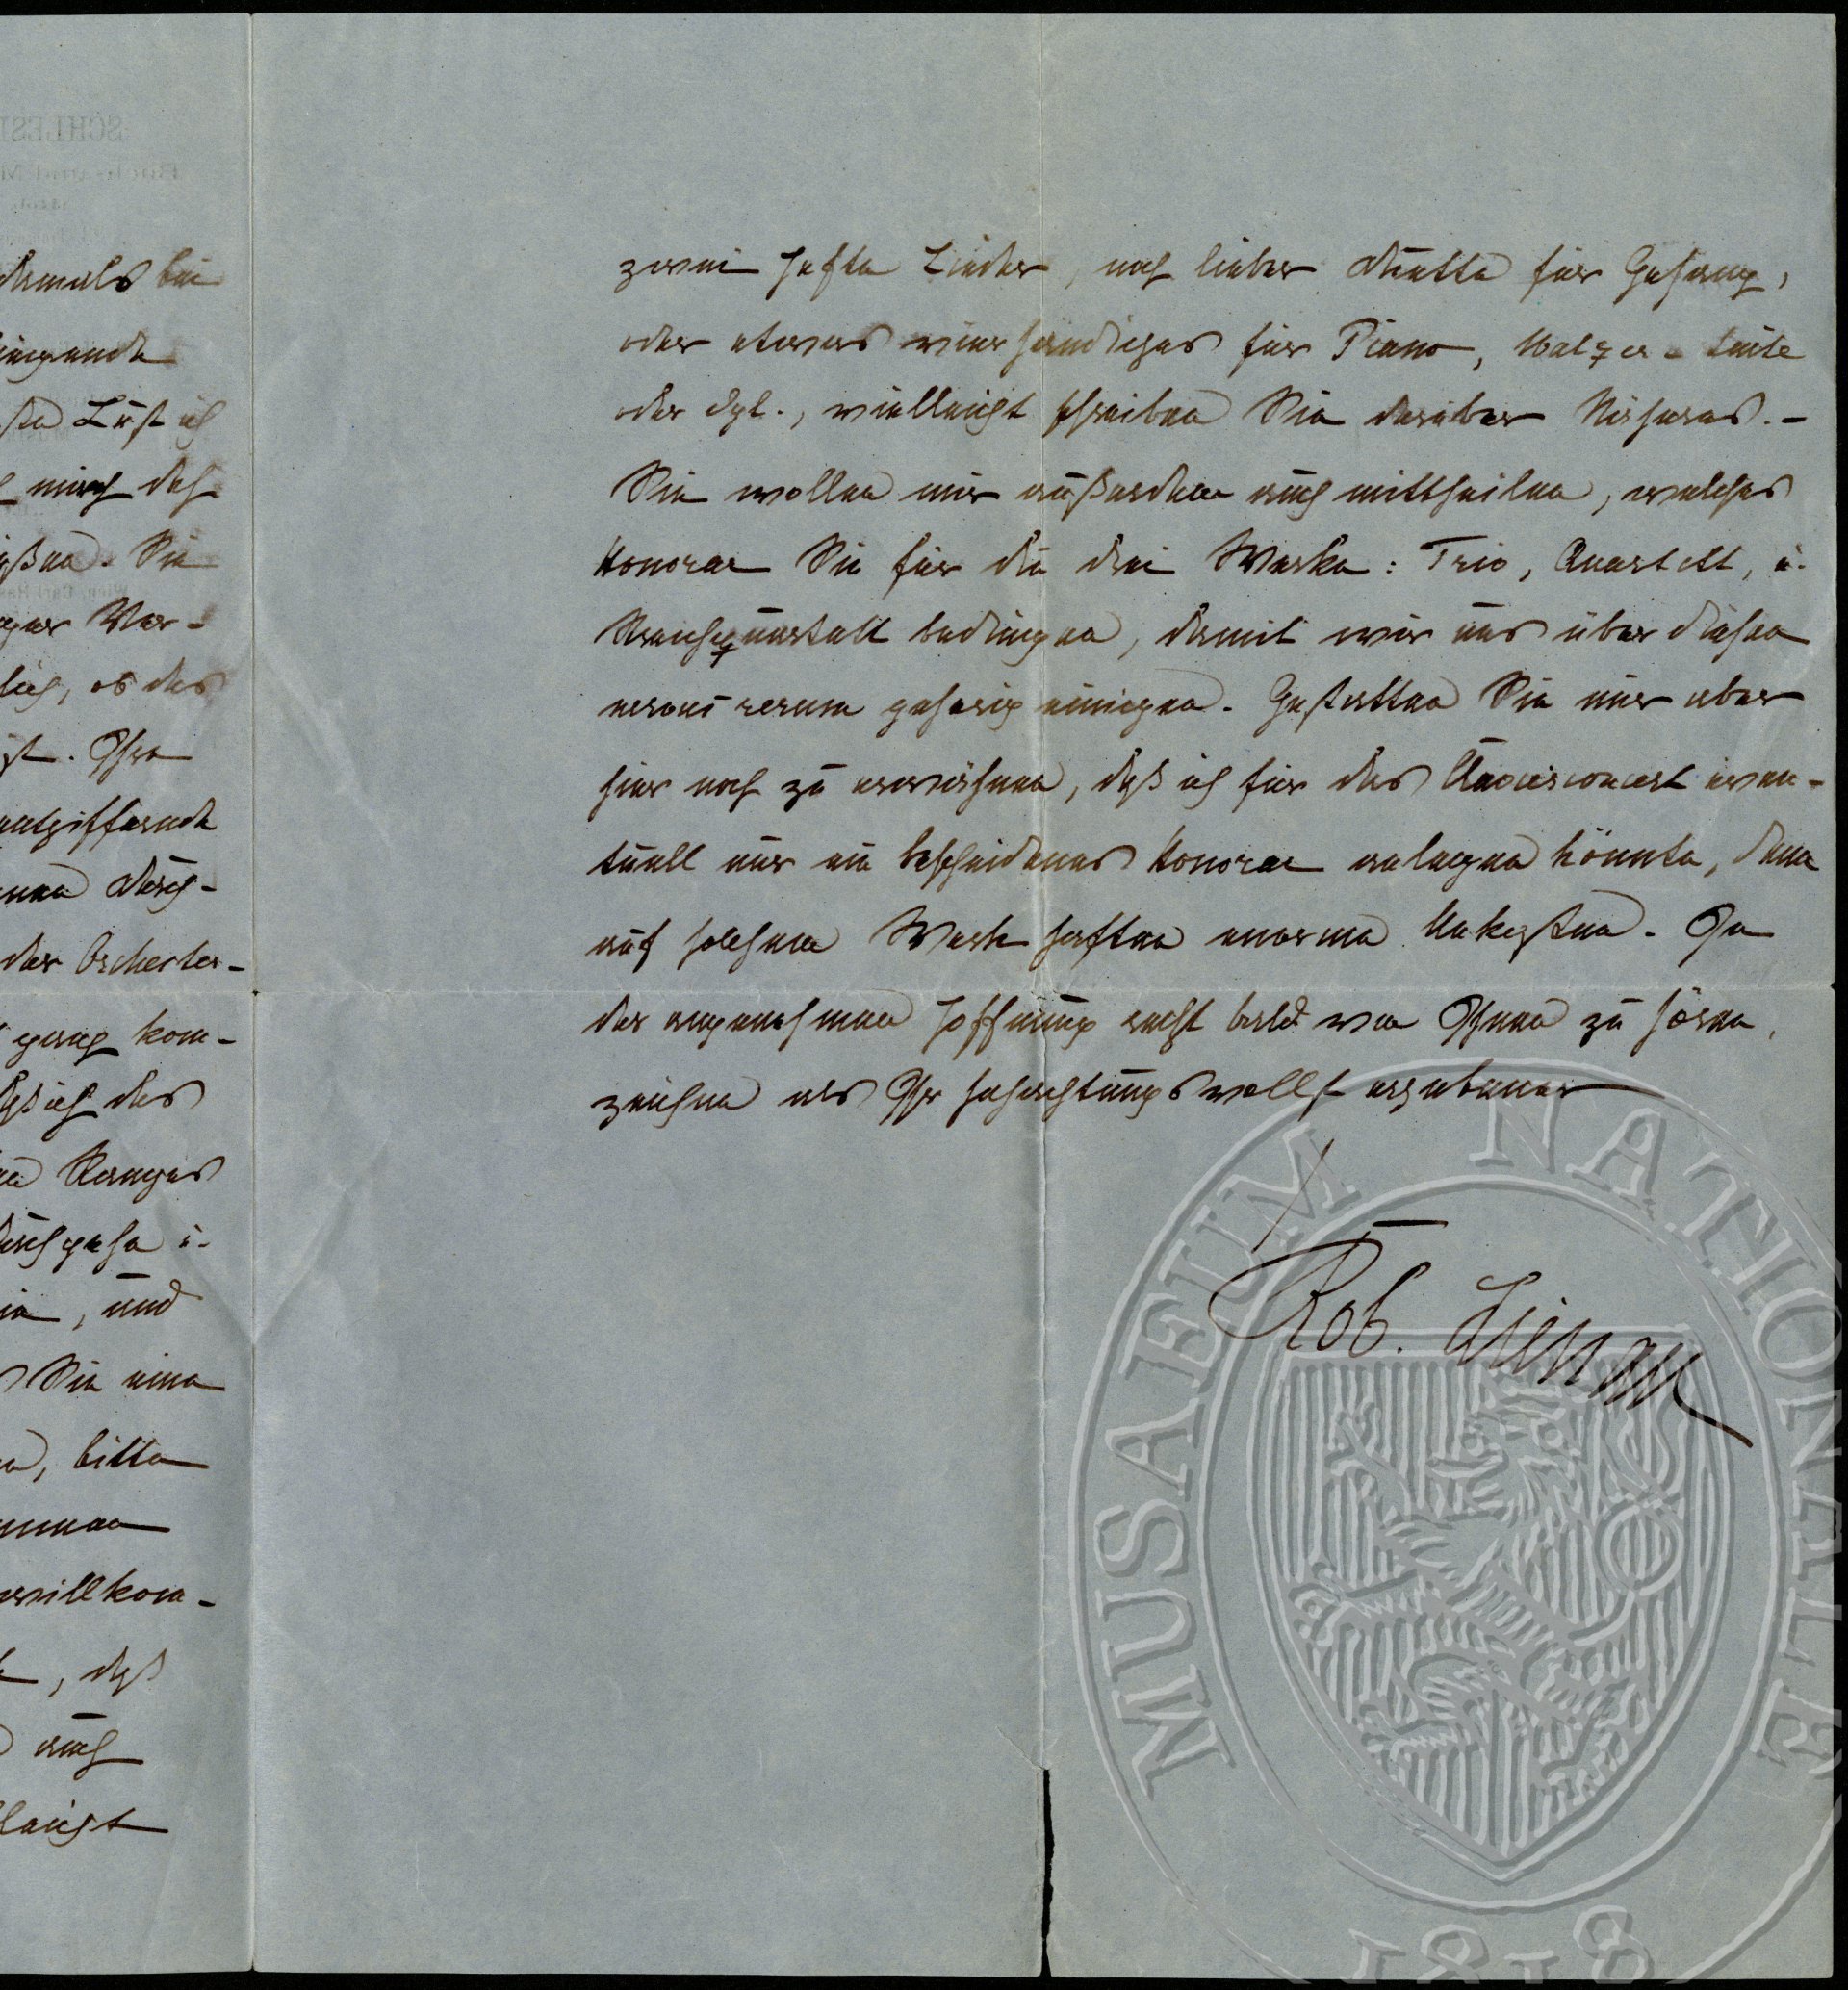 SCHLESI
Buch- und M
damals bei
ste Lust ich
mich des
ßen. Sie
ger Ver-
lich, ob das
st. Ihre
entziffernde
nen durch-
der Orchester-
gang kom-
daß ich das
Ranges
durchgehe u.
, und
Sie eine
, bitte
willkom-
, daß
auch
leicht
zwei Hefte Lieder, noch lieber Duette für Gesang,
oder etwas vierhändiges für Piano, Walzer-Suite
oder dgl., vielleicht schreiben Sie darüber Näheres. –
Sie wollen mir außerdem auch mittheilen, welches
Honorar Sie für die drei Werke: Trio, Quartett, u.
Streichquartett bedingen, damit wir uns über diesen
nervus rerum gehörig einigen. Gestatten Sie mir aber
hier noch zu erwähnen, daß ich für das Clavierconcert even-
tuell nur ein bescheidenes Honorar anlegen könnte, denn
auf solchem Werk haften enorme Unkosten. In
der angenehmen Hoffnung recht bald von Ihnen zu hören,
zeichne als Ihr hochachtungsvollst ergebener
Rob. Lienau
MUSAEUM NATIONALE
1818